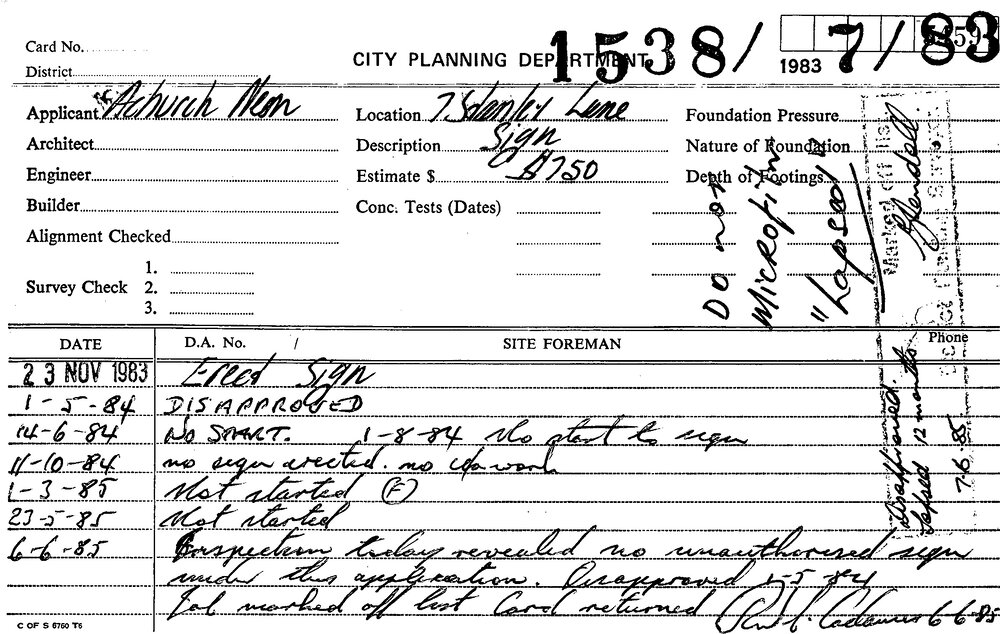 Card No.
CITY PLANNING DEPARTMENT
1538/ 7/83
1983
District
Applicant Achurch Neon
Location 7 Stanley Lane
Foundation Pressure
Architect
Description Sign
Nature of Foundation
Engineer
Estimate $ $750
Depth of Footings
Builder
Conc. Tests (Dates)
Alignment Checked
Survey Check
1.
2.
3.
Do not
Microfilm
"Lapsed"
Marked Off List
DATE
D.A. No. /
SITE FOREMAN
Phone
23 NOV 1983 Erect Sign
1-5-84 DISAPPROVED
14-6-84 No START. 1-8-84 No start to sign
11-10-84 no sign erected. no work
1-3-85 Not started (F)
23-5-85 Not started
6-6-85 Inspection today revealed no unauthorised sign
under this application. Disapproved 1-5-84
Job marked off list Card returned 6-6-85
Disapproved.
Lapsed 12 months
7-6-85
C OF S 6760 T6